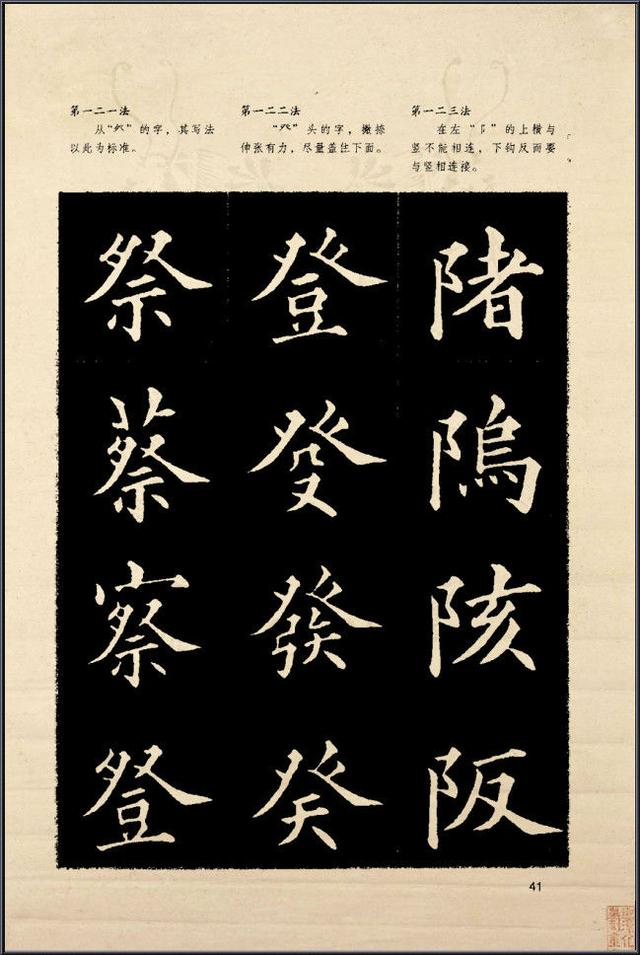 第一二一法
从“癶”的字，其写法
以此为标准。
第一二二法
“癶”头的字，撇捺
伸张有力，尽量盖住下面。
第一二三法
在左“阝”的上横与
竖不能相连，下钩反而要
与竖相连接。
祭 登 陼
蔡 癹 隖
察 發 陔
豋 癸 阪
41